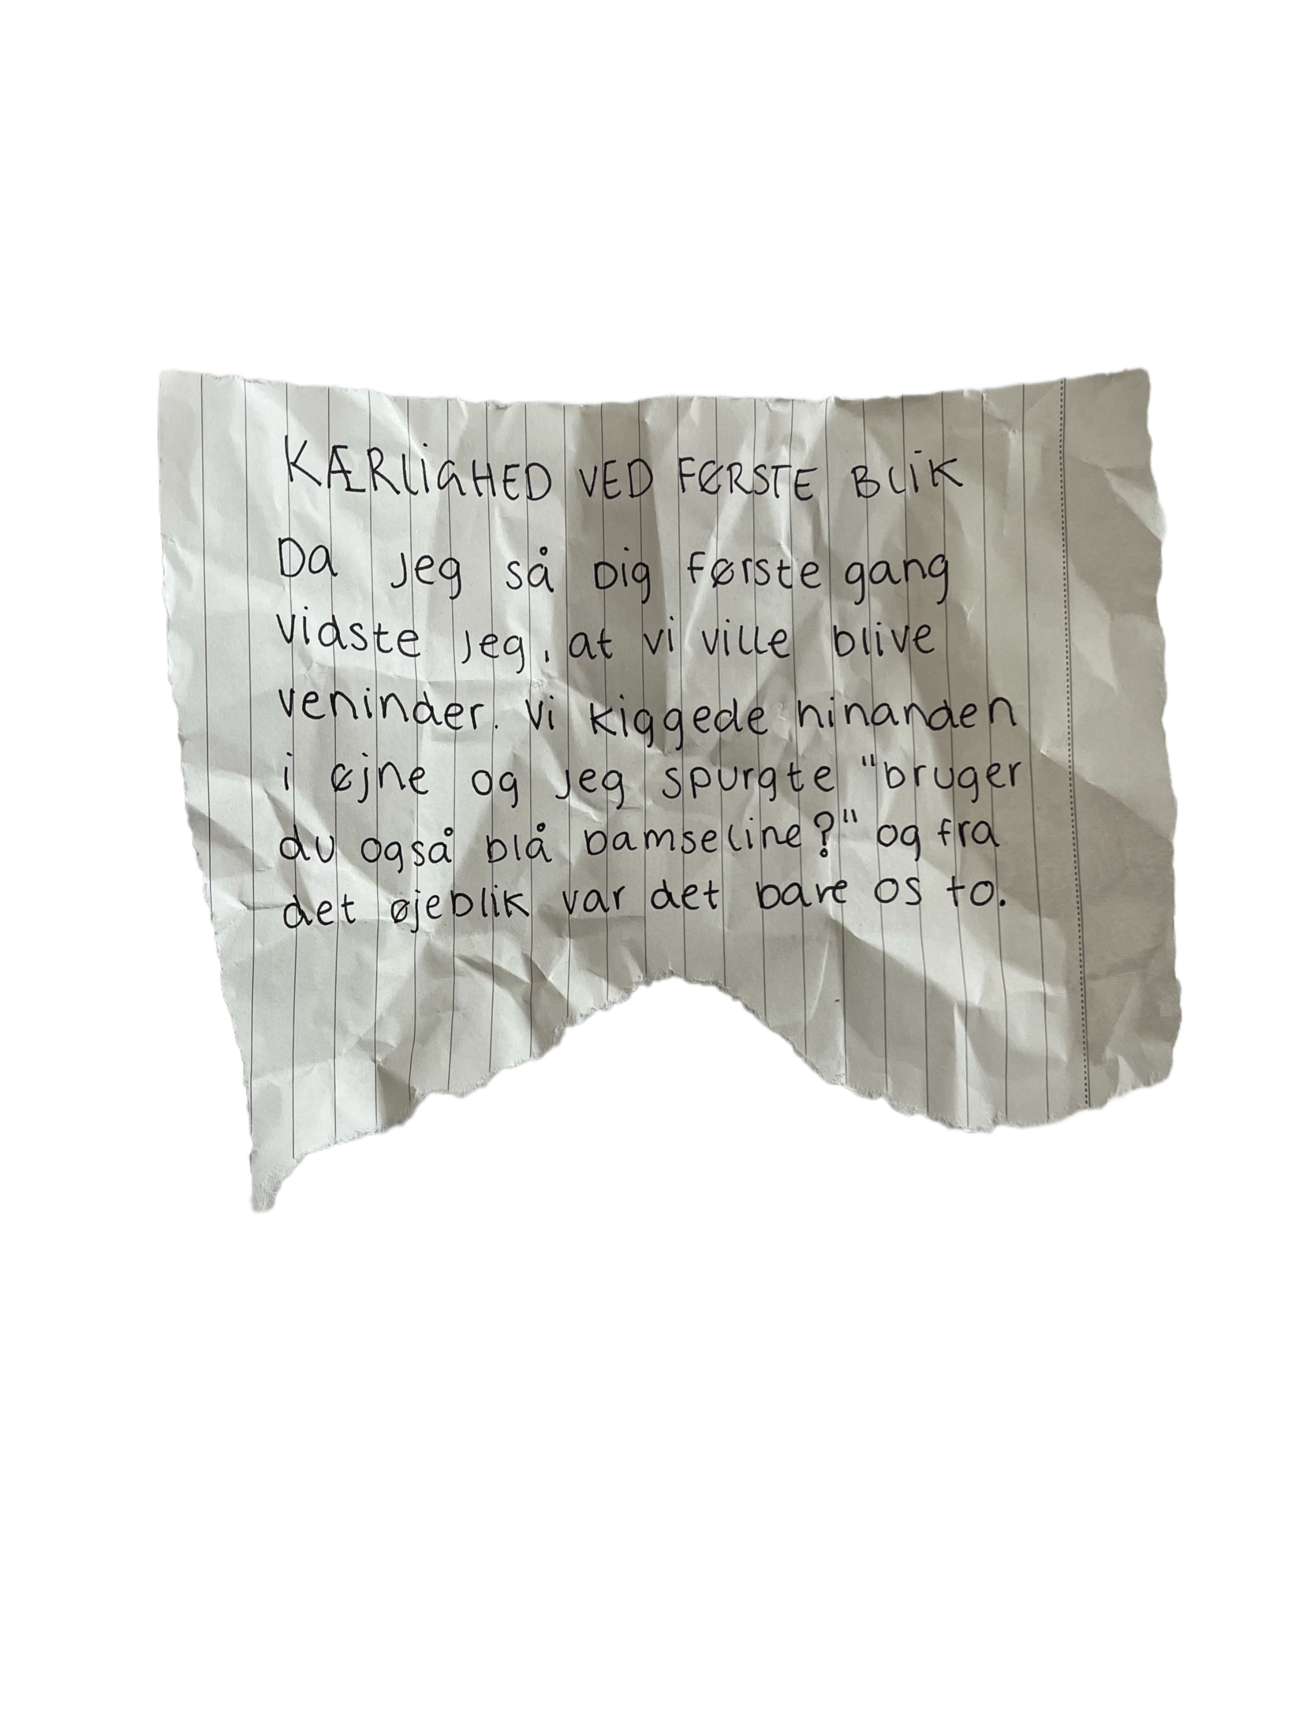 KÆRLIGHED VED FØRSTE BLIK
Da jeg så Dig første gang
vidste jeg, at vi ville blive
veninder. Vi kiggede hinanden
i øjne og jeg spurgte "bruger
du også blå bamseline?" og fra
det øjeblik var det bare os to.